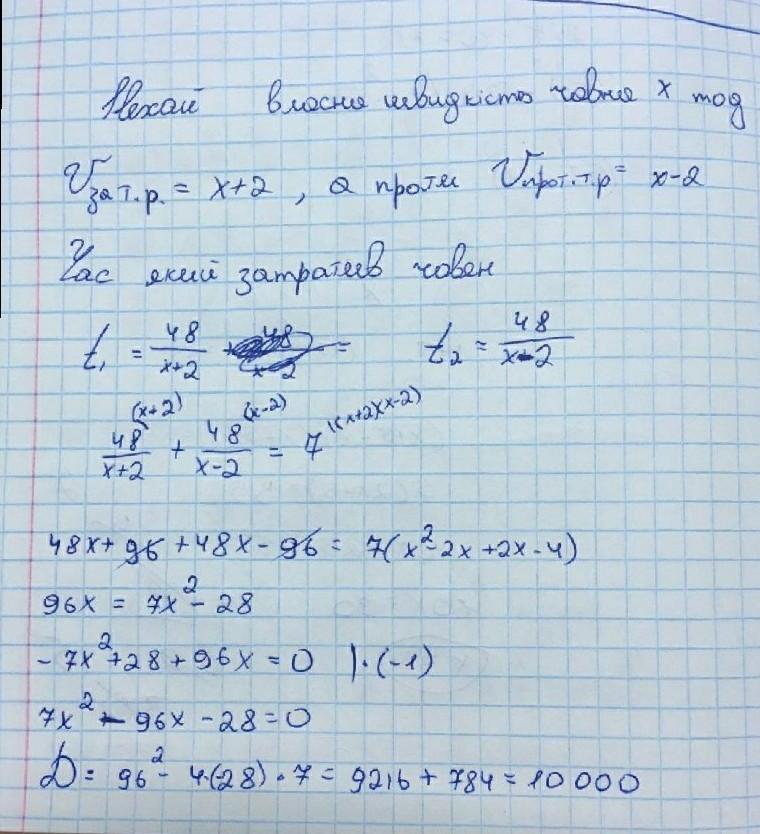 Нехай власна швидкість човна x тод
Vза т.р. = x+2 , а проти Vпрот.т.р = x-2
Час який затратив човен
t₁ = 48/(x+2) t₂ = 48/(x-2)
48/(x+2) ^(x+2) + 48/(x-2) ^(x-2) = 7 ^((x+2)(x-2)
48x + 96 + 48x - 96 = 7(x² - 2x + 2x - 4)
96x = 7x² - 28
-7x² + 28 + 96x = 0 |·(-1)
7x² - 96x - 28 = 0
D = 96² - 4·(-28)·7 = 9216 + 784 = 10000